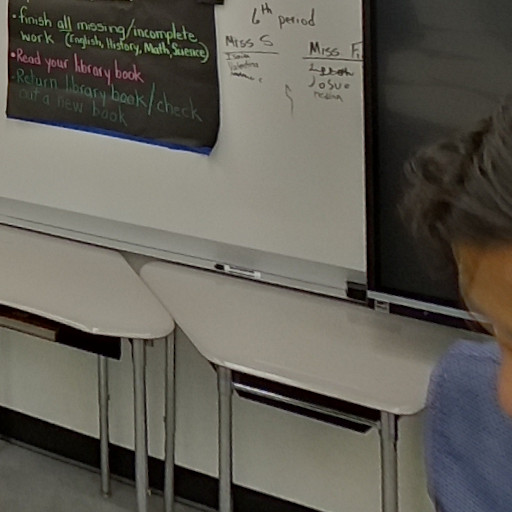 •finish all missing/incomplete
work (English, History, Math, Science)
•Read your library book
•Return library book/check
out a new book
6th period
Miss S
Valentina
Miss F
Josue